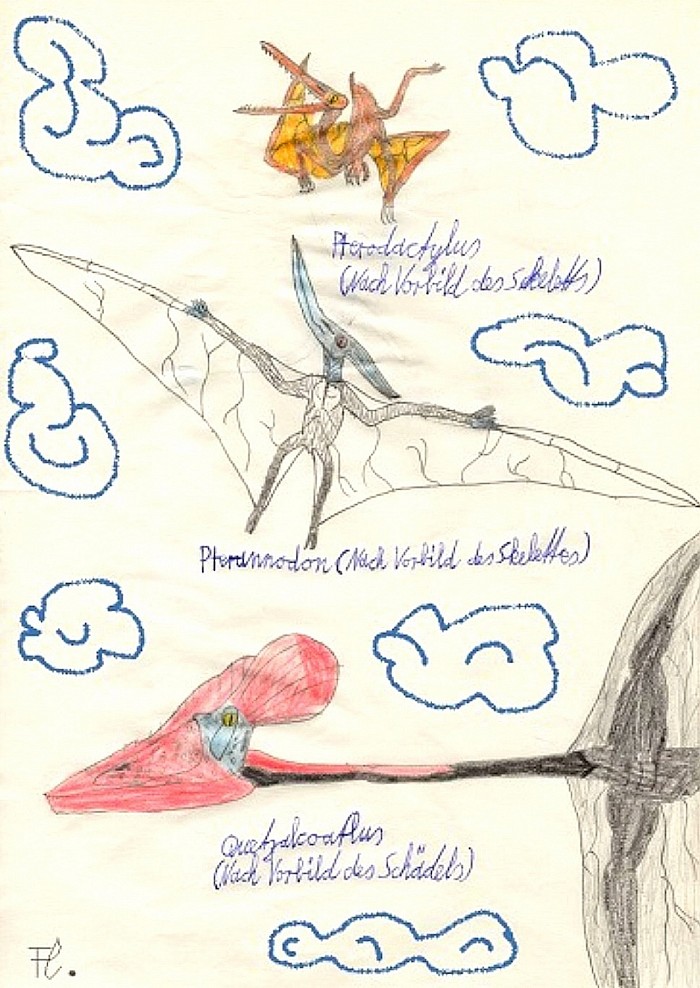 Pterodactylus
(Nach Vorbild des Skeletts)
Pterannodon (Nach Vorbild des Skelettes)
Quetzalcoatlus
(Nach Vorbild des Schädels)